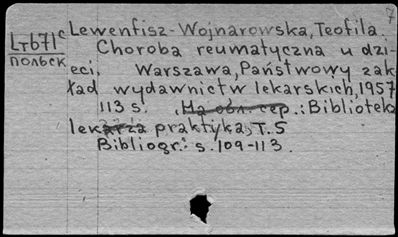 7
Lт671с Lewenfisz-Wojnarowska, Teofila.
польск Choroba reumatyczna u dzi-
eci. Warszawa, Państwowy zak-
ład wydawnictw lekarskich, 1957
113 s. , На обл. сер.: Biblioteka
lekarza praktyka, T. 5
Bibliogr: s. 109-113.